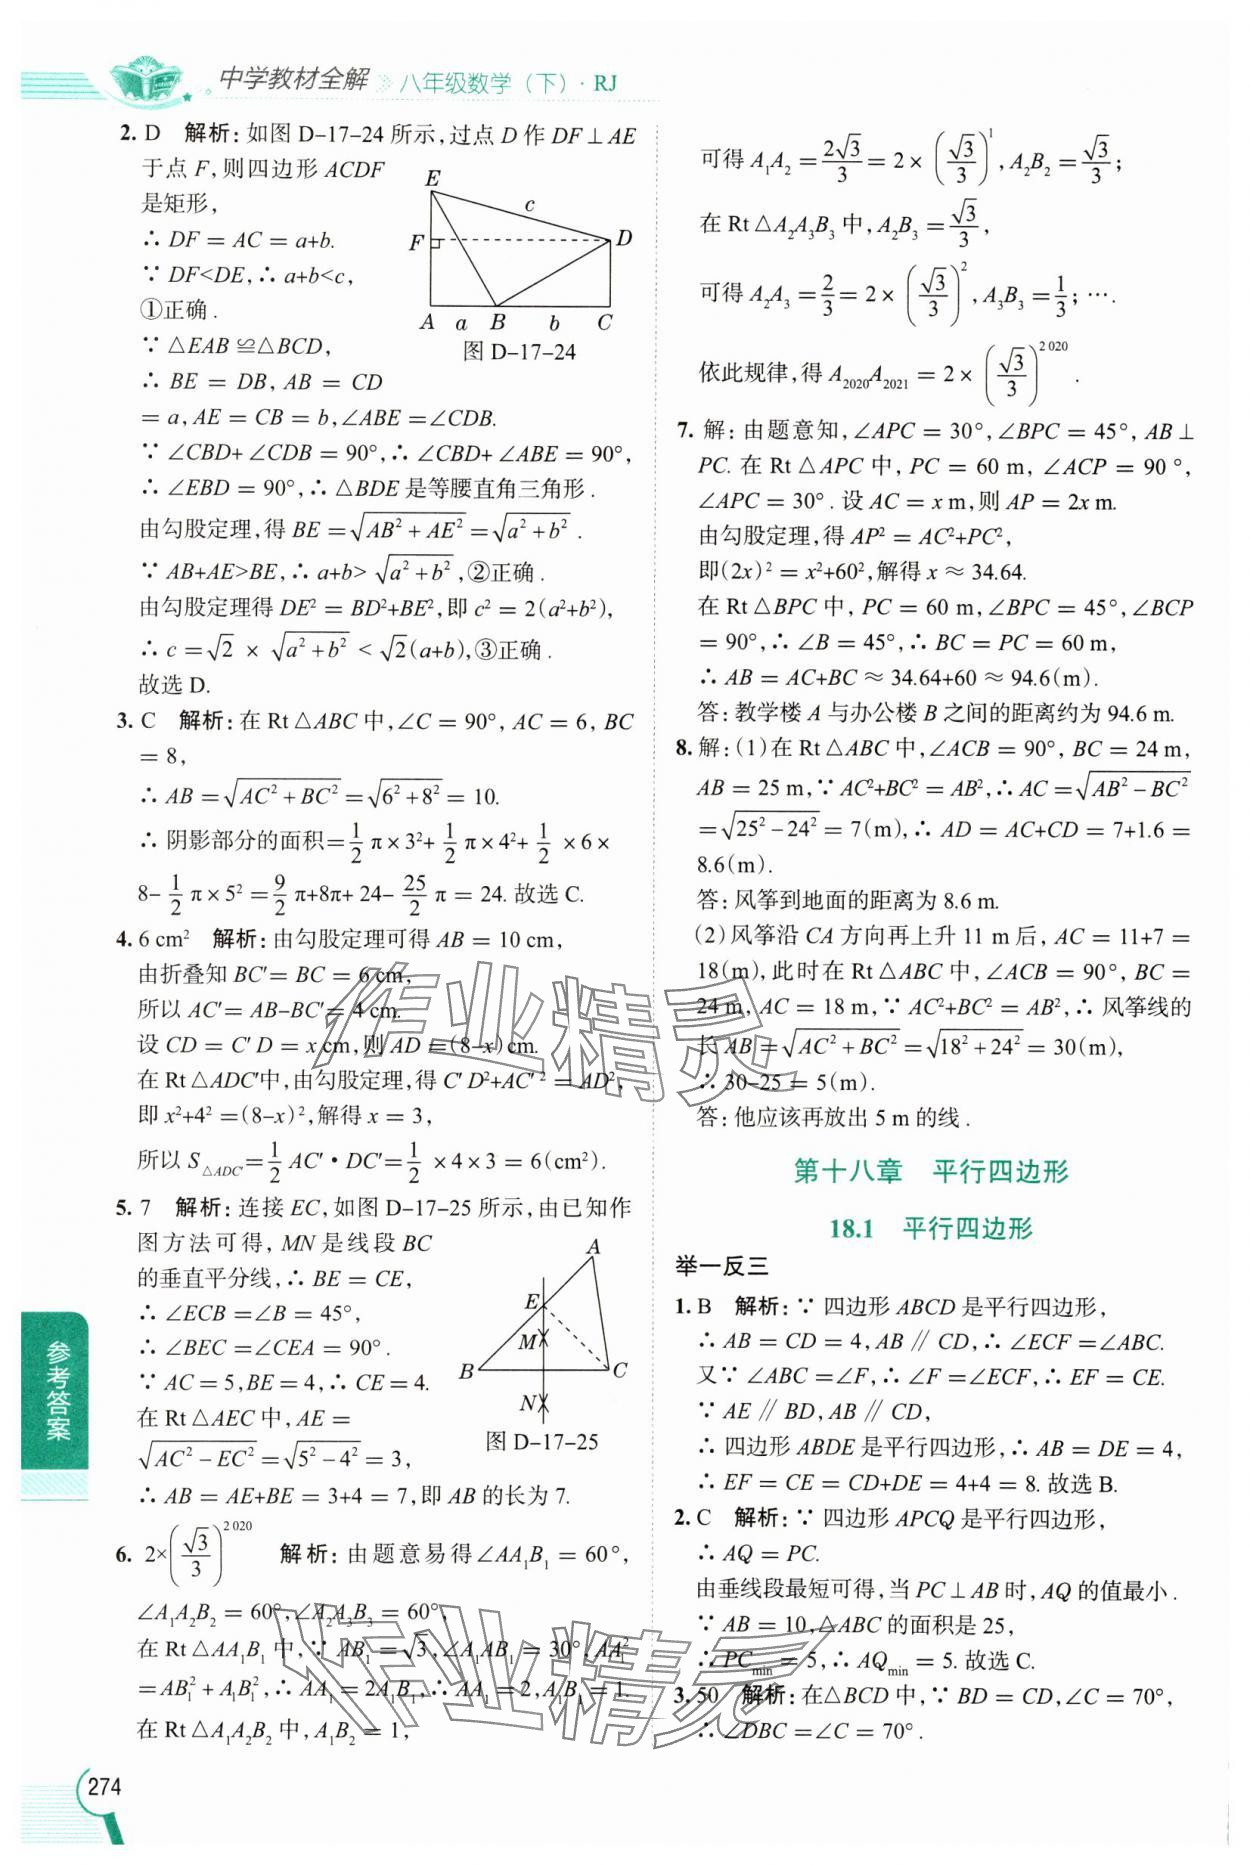 中学教材全解 八年级数学（下）·RJ
2. D 解析：如图 D-17-24 所示，过点 D 作 DF⊥AE
于点 F，则四边形 ACDF
是矩形，
∴ DF = AC = a+b.
∵ DF<DE，∴ a+b<c，
①正确.
∵ △EAB ≌△BCD，
∴ BE = DB，AB = CD
= a，AE = CB = b，∠ABE =∠CDB.
E
c
F
D
A a B b C
图 D-17-24
∵ ∠CBD+∠CDB = 90°，∴ ∠CBD+∠ABE = 90°，
∴ ∠EBD = 90°，∴ △BDE 是等腰直角三角形.
由勾股定理，得 BE =√(AB²+AE²)=√(a²+b²).
∵ AB+AE>BE，∴ a+b>√(a²+b²)，②正确.
由勾股定理得 DE² = BD²+BE²，即 c² = 2(a²+b²)，
∴ c =√2 × √(a²+b²) < √2(a+b)，③正确.
故选 D.
3. C 解析：在 Rt△ABC 中，∠C = 90°，AC = 6，BC
= 8，
∴ AB =√(AC²+BC²)=√(6²+8²)= 10.
∴ 阴影部分的面积=1/2 π×3²+1/2 π×4²+1/2 ×6×
8-1/2 π×5² =9/2 π+8π+24-25/2 π = 24. 故选 C.
4. 6 cm² 解析：由勾股定理可得 AB = 10 cm，
由折叠知 BC′= BC = 6 cm，
所以 AC′= AB-BC′= 4 cm.
设 CD = C′D = x cm，则 AD =(8-x)cm.
在 Rt△ADC′中，由勾股定理，得 C′D²+AC′² = AD²，
即 x²+4² =(8-x)²，解得 x = 3，
所以 S△ADC′=1/2 AC′·DC′=1/2 ×4×3 = 6(cm²).
5. 7 解析：连接 EC，如图 D-17-25 所示，由已知作
图方法可得，MN 是线段 BC
的垂直平分线，∴ BE = CE，
∴ ∠ECB =∠B = 45°，
∴ ∠BEC =∠CEA = 90°.
∵ AC = 5，BE = 4，∴ CE = 4.
在 Rt△AEC 中，AE =
√(AC²-EC²)=√(5²-4²)= 3，
∴ AB = AE+BE = 3+4 = 7，即 AB 的长为 7.
A
E
M
B C
N
图 D-17-25
6. 2×(√3/3)²⁰²⁰ 解析：由题意易得∠AA₁B₁ = 60°，
∠A₁A₂B₂ = 60°，∠A₂A₃B₃ = 60°，
在 Rt△AA₁B₁ 中，∵ AB₁ =√3，∠A₁AB₁ = 30°，AA₁²
= AB₁²+A₁B₁²，∴ AA₁ = 2A₁B₁，∴ AA₁ = 2，A₁B₁ = 1.
在 Rt△A₁A₂B₂ 中，A₁B₂ = 1，
可得 A₁A₂ =2√3/3= 2×(√3/3)¹，A₂B₂ =√3/3；
在 Rt△A₂A₃B₃ 中，A₂B₃ =√3/3，
可得 A₂A₃ =2/3= 2×(√3/3)²，A₃B₃ =1/3；….
依此规律，得 A₂₀₂₀A₂₀₂₁ = 2×(√3/3)²⁰²⁰.
7. 解：由题意知，∠APC = 30°，∠BPC = 45°，AB⊥
PC. 在 Rt△APC 中，PC = 60 m，∠ACP = 90°，
∠APC = 30°. 设 AC = x m，则 AP = 2x m.
由勾股定理，得 AP² = AC²+PC²，
即(2x)² = x²+60²，解得 x ≈ 34.64.
在 Rt△BPC 中，PC = 60 m，∠BPC = 45°，∠BCP
= 90°，∴ ∠B = 45°，∴ BC = PC = 60 m，
∴ AB = AC+BC ≈ 34.64+60 ≈ 94.6(m).
答：教学楼 A 与办公楼 B 之间的距离约为 94.6 m.
8. 解：(1)在 Rt△ABC 中，∠ACB = 90°，BC = 24 m，
AB = 25 m，∵ AC²+BC² = AB²，∴ AC =√(AB²-BC²)
=√(25²-24²)= 7(m)，∴ AD = AC+CD = 7+1.6 =
8.6(m).
答：风筝到地面的距离为 8.6 m.
(2)风筝沿 CA 方向再上升 11 m 后，AC = 11+7 =
18(m)，此时在 Rt△ABC 中，∠ACB = 90°，BC =
24 m，AC = 18 m，∵ AC²+BC² = AB²，∴ 风筝线的
长 AB =√(AC²+BC²)=√(18²+24²)= 30(m)，
∴ 30-25 = 5(m).
答：他应该再放出 5 m 的线.
第十八章 平行四边形
18.1 平行四边形
举一反三
1. B 解析：∵ 四边形 ABCD 是平行四边形，
∴ AB = CD = 4，AB∥CD，∴ ∠ECF =∠ABC.
又∵ ∠ABC =∠F，∴ ∠F =∠ECF，∴ EF = CE.
∵ AE∥BD，AB∥CD，
∴ 四边形 ABDE 是平行四边形，∴ AB = DE = 4，
∴ EF = CE = CD+DE = 4+4 = 8. 故选 B.
2. C 解析：∵ 四边形 APCQ 是平行四边形，
∴ AQ = PC.
由垂线段最短可得，当 PC⊥AB 时，AQ 的值最小.
∵ AB = 10，△ABC 的面积是 25，
∴ PCmin = 5，∴ AQmin = 5. 故选 C.
3. 50 解析：在△BCD 中，∵ BD = CD，∠C = 70°，
∴ ∠DBC =∠C = 70°.
参考答案
274
作业精灵
作业精灵